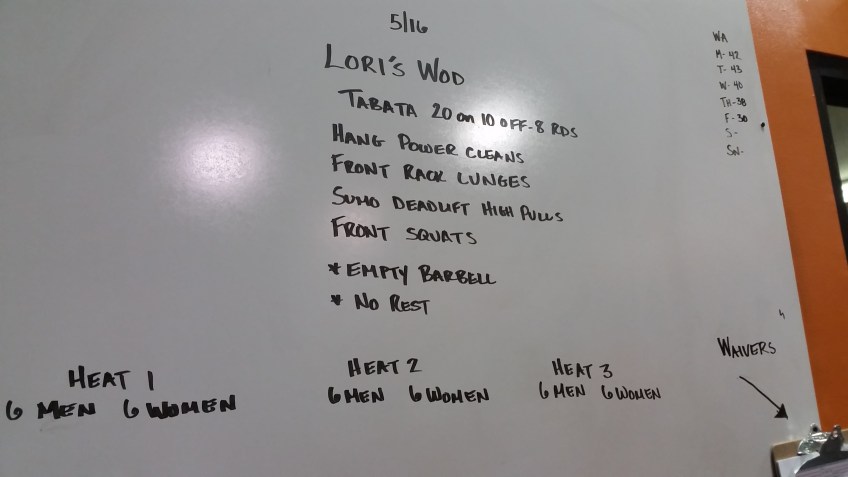 5/16
LORI'S WOD
TABATA 20 on 10 OFF-8 RDS
HANG POWER CLEANS
FRONT RACK LUNGES
SUMO DEADLIFT HIGH PULLS
FRONT SQUATS
* EMPTY BARBELL
* NO REST
HEAT 1
6 MEN 6 WOMEN
HEAT 2
6 MEN 6 WOMEN
HEAT 3
6 MEN 6 WOMEN
WAIVERS
WA
M- 42
T- 43
W- 40
TH-38
F- 30
S-
SN-